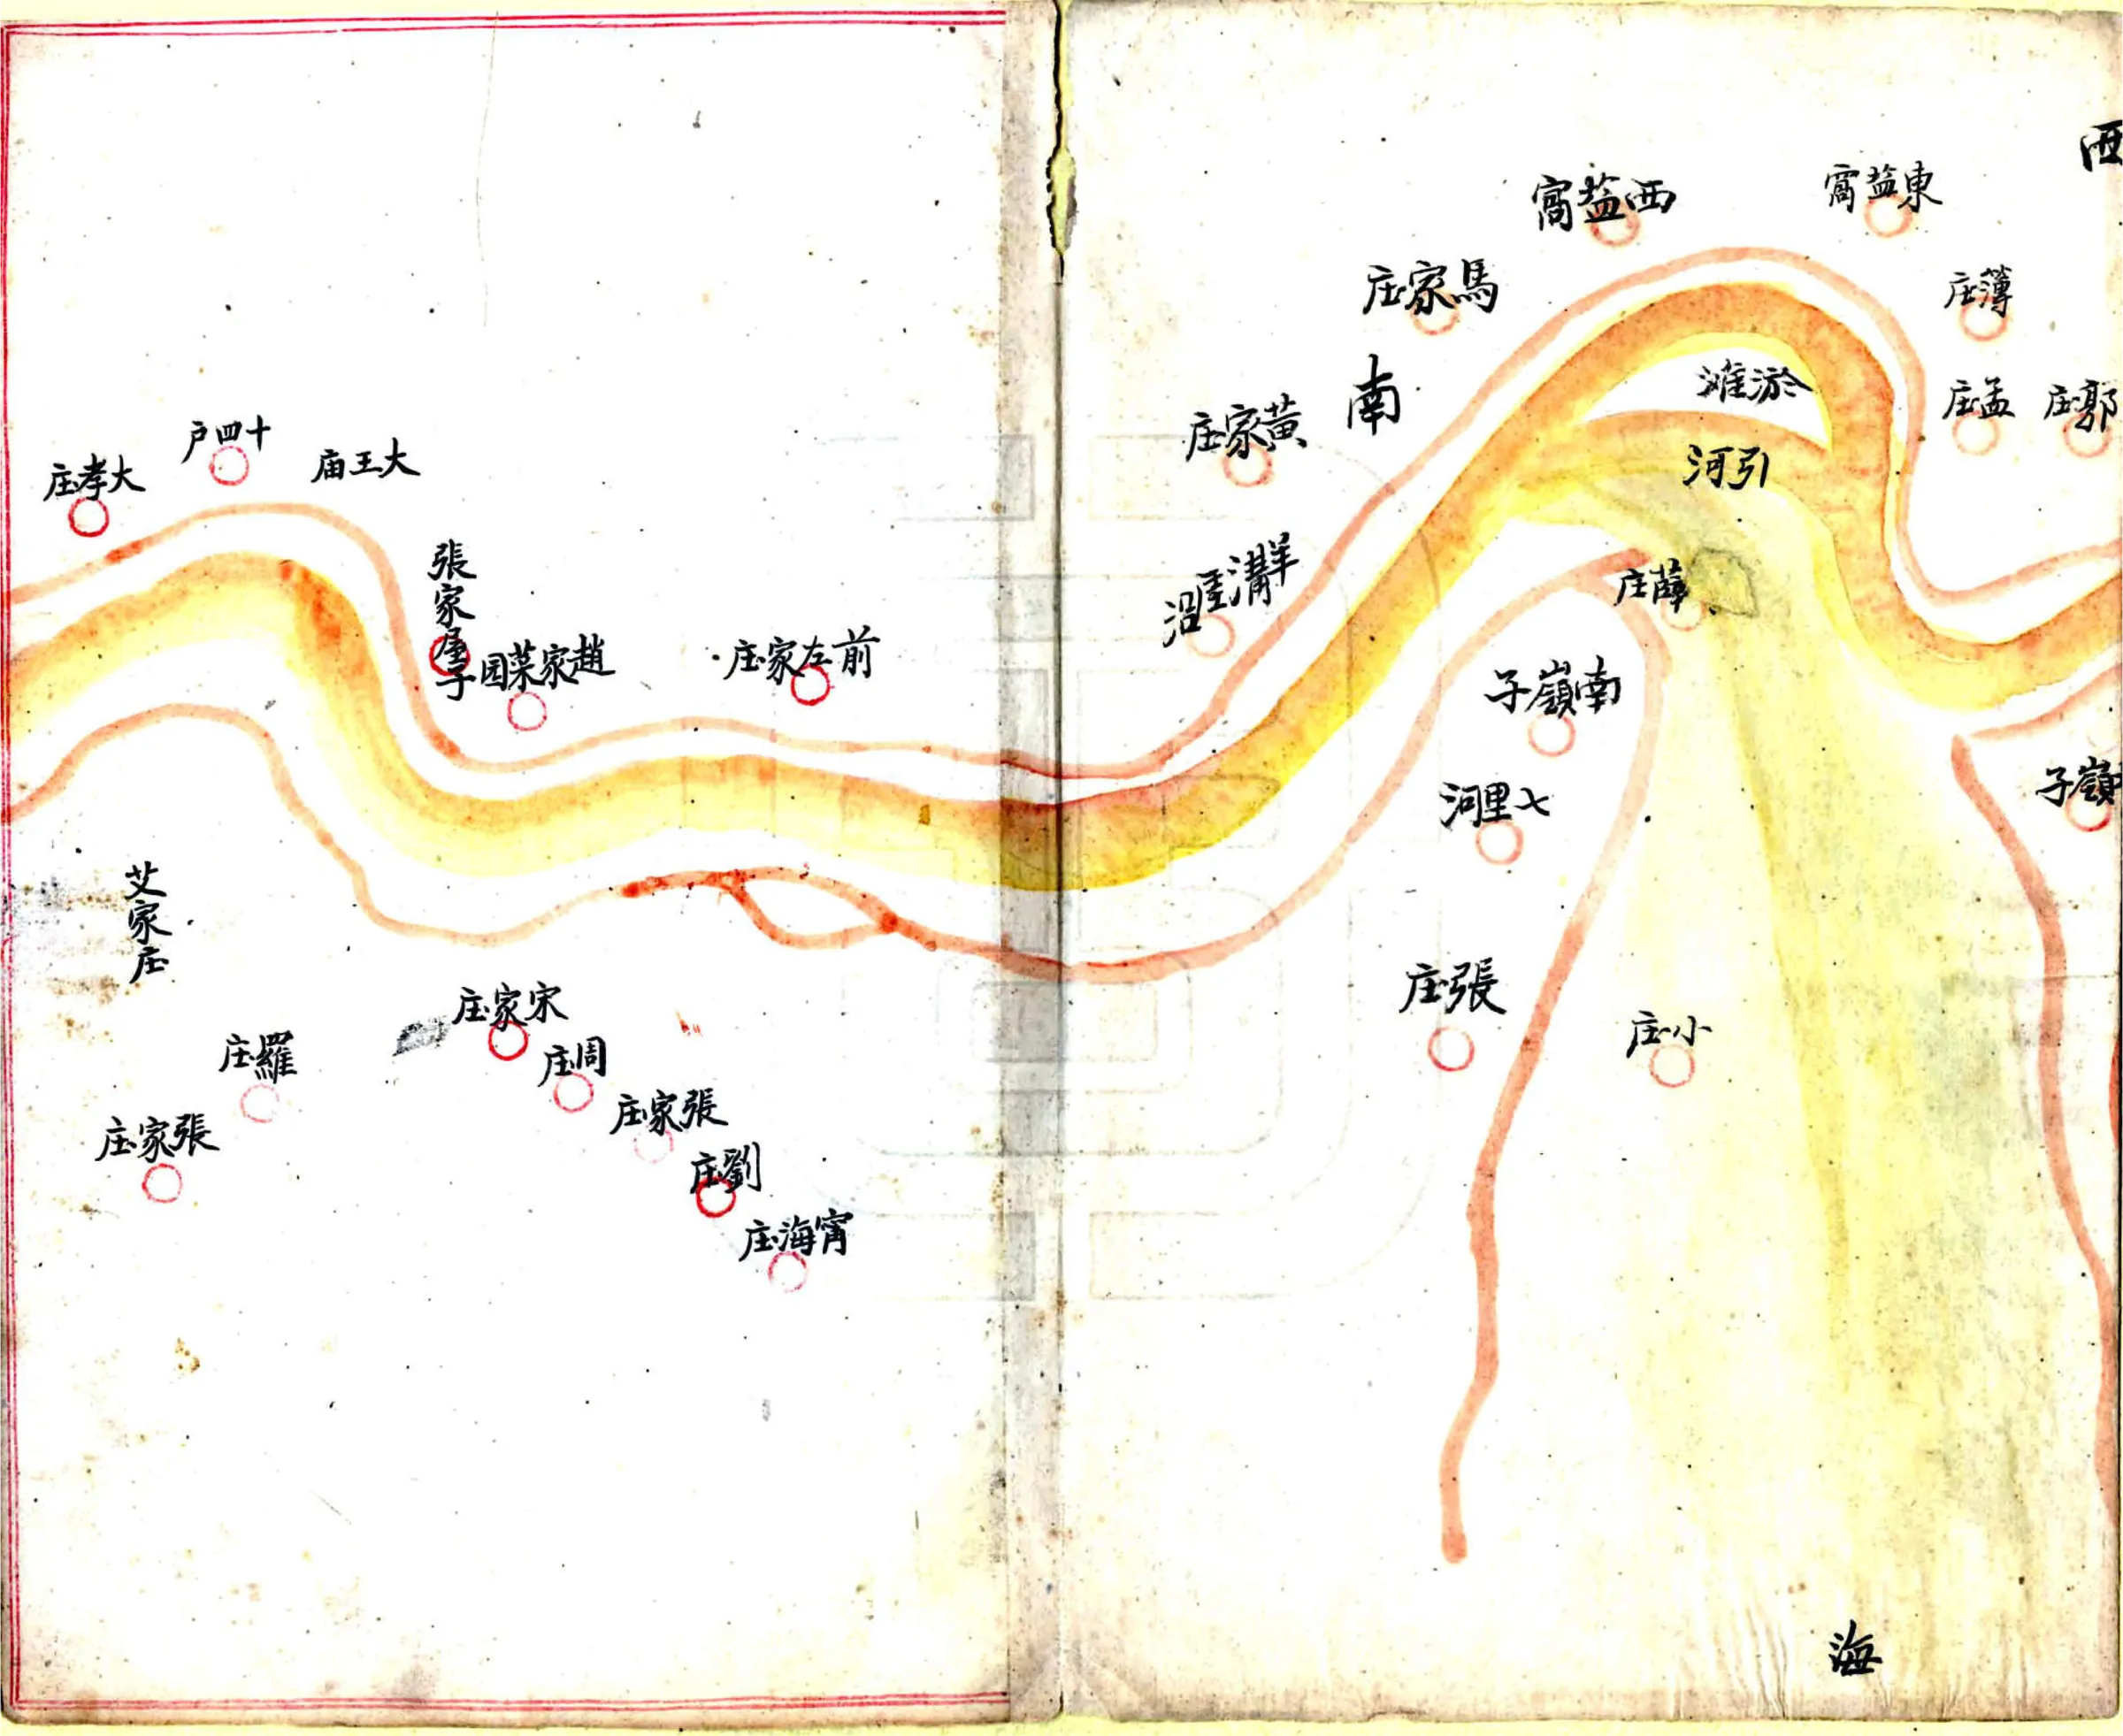 西
東盐窩
西盐窩
簿庄
馬家庄
南
淤滩
郭庄
孟庄
黃家庄
引河
薛庄
南嶺子
嶺子
七里河
張庄
小庄
海
十四户
大王庙
大孝庄
張家屋子
趙家菜园
前左家庄
艾家庄
宋家庄
羅庄
周庄
張家庄
張家庄
劉庄
甯海庄